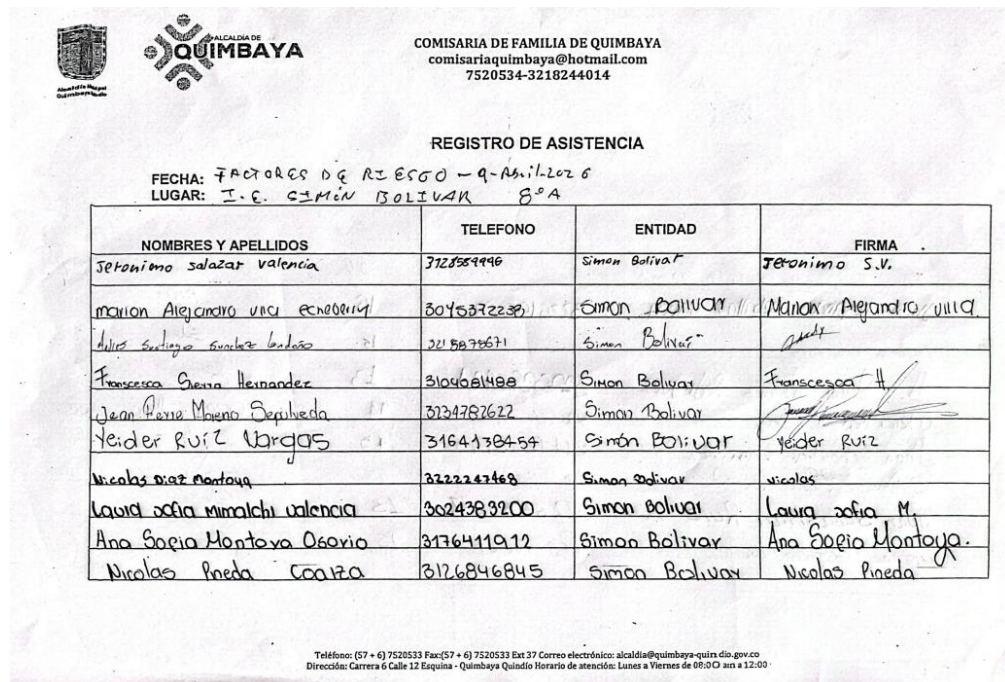 ALCALDÍA DE
QUIMBAYA
COMISARIA DE FAMILIA DE QUIMBAYA
comisariaquimbaya@hotmail.com
7520534-3218244014
REGISTRO DE ASISTENCIA
FECHA: FACTORES DE RIESGO - 9-Abril-2026
LUGAR: I.E. SIMÓN BOLIVAR 8°A
NOMBRES Y APELLIDOS TELEFONO ENTIDAD FIRMA
Jeronimo salazar valencia 3128559996 Simon Bolivar Jeronimo S.V.
marlon Alejandro villa echeberry 3045372238 Simon Bolivar Marlon Alejandro villa
Santiago Sanchez Londoño Simon Bolivar
Franscesca Sierra Hernandez 3104081488 Simon Bolivar Franscesca H
Jean Pierre Moreno Sepulveda 3234782622 Simon Bolivar
Yeider Ruíz Vargas 3164138454 Simón Bolivar Yeider Ruiz
Nicolas Diaz Montoya 3222247468 Simon Bolivar nicolas
Laura sofia Mimalchi valencia 3024383200 Simon Bolivar Laura sofia M.
Ana Sopia Montoya Osorio 3176411912 Simon Bolivar Ana Sopia Montoya.
Nicolas Pineda Coaiza 3126846845 Simon Bolivar Nicolas Pineda
Teléfono: (57 + 6) 7520533 Fax:(57 + 6) 7520533 Ext 37 Correo electrónico: alcaldia@quimbaya-quindio.gov.co
Dirección: Carrera 6 Calle 12 Esquina - Quimbaya Quindío Horario de atención: Lunes a Viernes de 08:00 am a 12:00